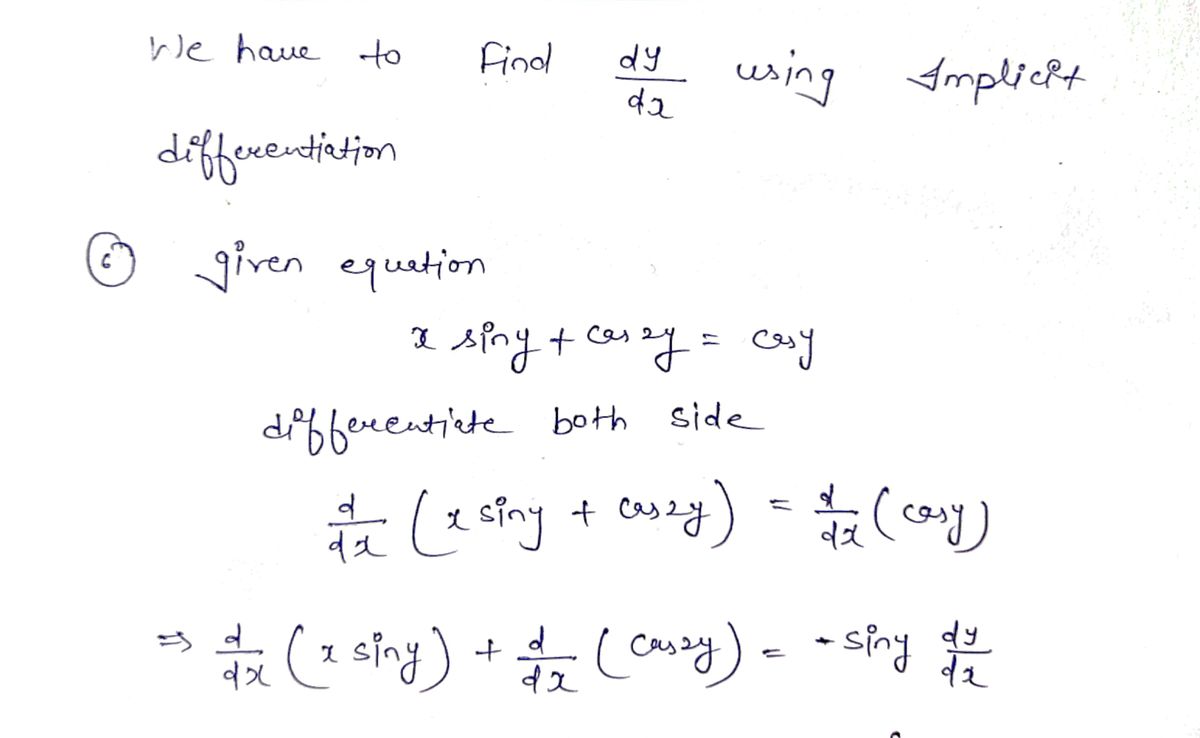 We have to find dy/dx using Implicit
differentiation
6 given equation
x siny + cos 2y = cosy
differentiate both side
d/dx (x siny + cos2y) = d/dx (cosy)
⇒ d/dx (x siny) + d/dx (cos2y) = - siny dy/dx